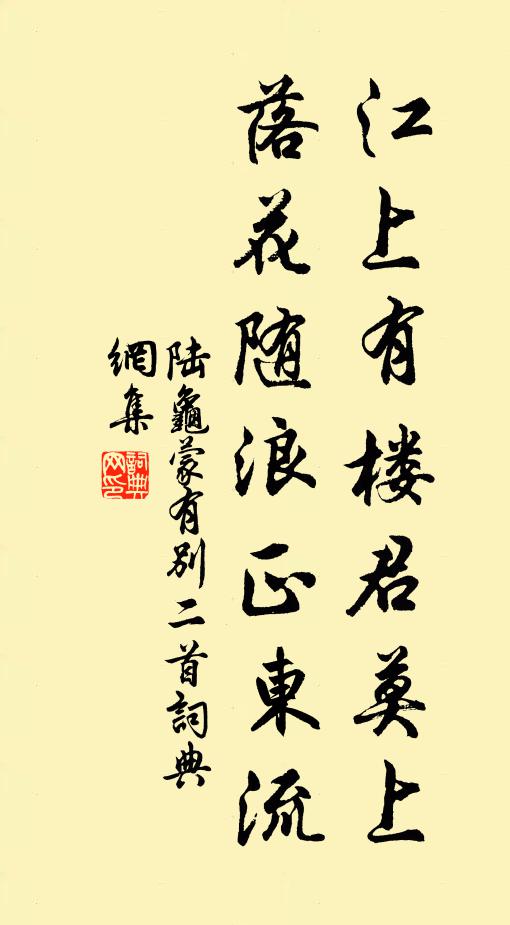 江上有楼君莫上
落花随浪正東流
陆龜蒙有别二首詞典
網集
詞典
网印